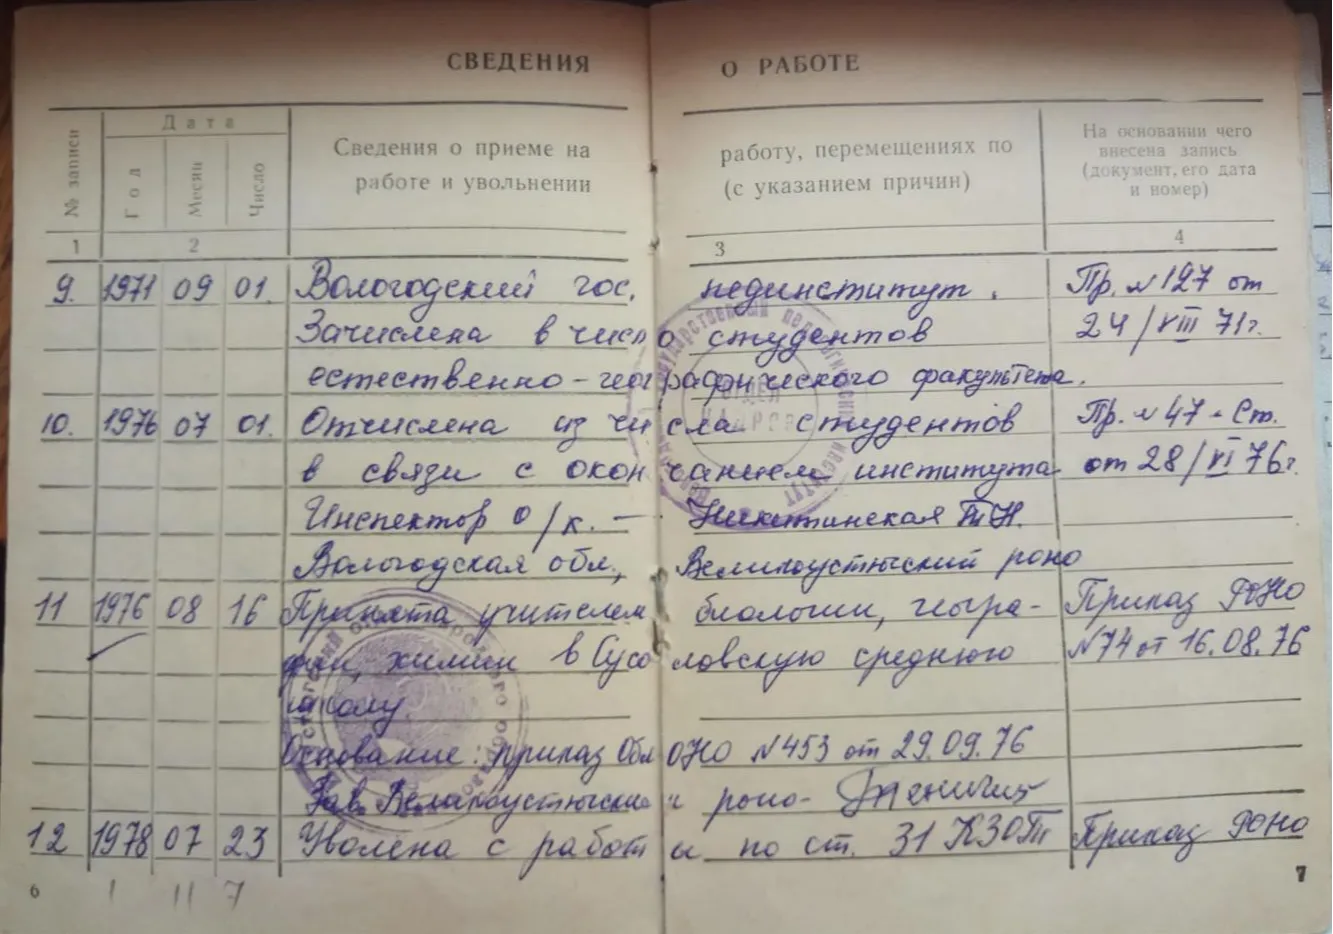 СВЕДЕНИЯ О РАБОТЕ
№ записи
Дата
Год
Месяц
Число
Сведения о приеме на работу, перемещениях по
работе и увольнении (с указанием причин)
На основании чего
внесена запись
(документ, его дата
и номер)
1 2 3 4
9. 1971 09 01. Вологодский гос. пединститут. Пр. №127 от
Зачислена в число студентов 24/VIII 71г.
естественно-географического факультета.
10. 1976 07 01. Отчислена из числа студентов Пр. №47-Ст.
в связи с окончанием института от 28/VI 76г.
Инспектор о/к. - Никитинская
Вологодская обл., Великоустюгский роно
11 1976 08 16 Принята учителем биологии, геогра- Приказ РОНО
фии, химии в Сусоловскую среднюю №74 от 16.08.76
школу.
Основание: приказ ОблОНО №453 от 29.09.76
Зав. Великоустюгским роно-
12 1978 07 23 Уволена с работы по ст. 31 КЗОТ Приказ РОНО
6 1 11 7 7
ОТДЕЛ
КАДРОВ